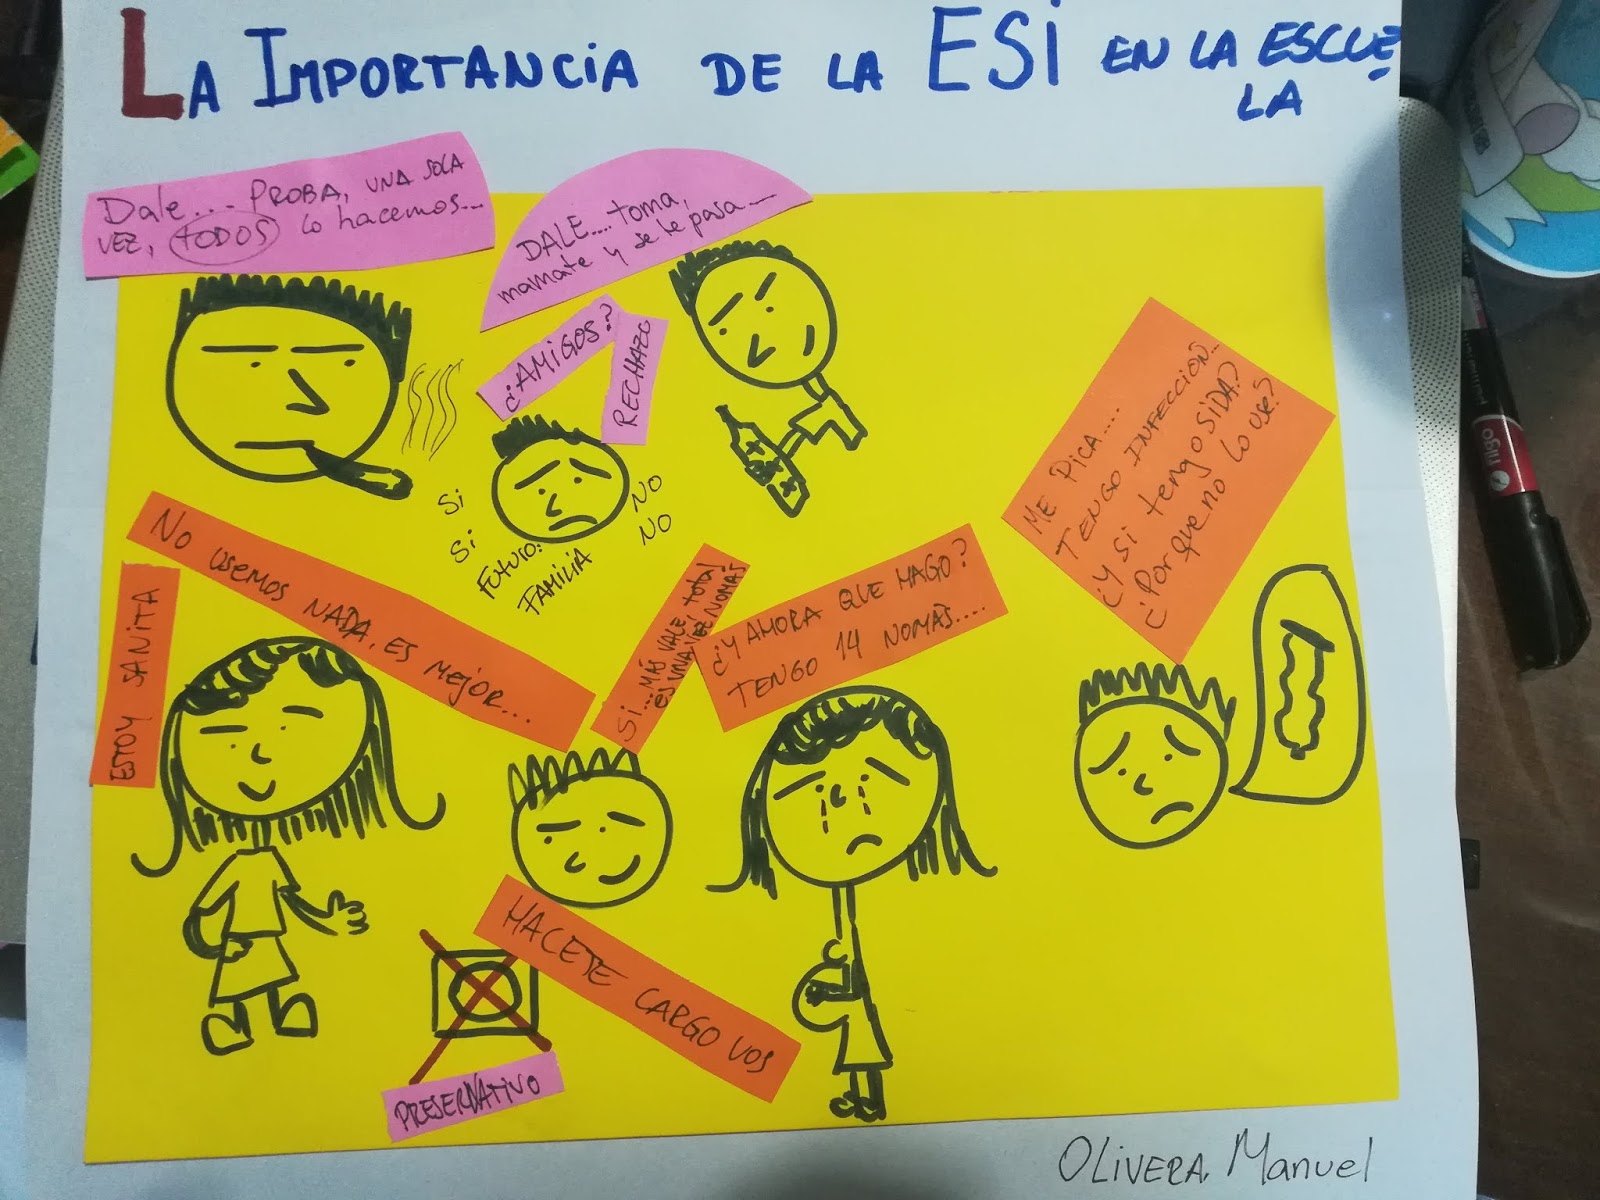 LA IMPORTANCIA DE LA ESI EN LA ESCUE
LA
Dale... PROBA, UNA SOLA
VEZ, TODOS lo hacemos...
DALE.... toma,
mamate y se te pasa...
¿AMIGOS?
RECHAZO
Si
Si
NO
NO
FUTURO:
FAMILIA
ME PICA....
TENGO INFECCIÓN...
¿Y si tengo SIDA?
¿Por que no lo use?
No usemos NADA, ES MEJOR...
ESTOY SANITA
Si...MÁS VALE, total
es UNA VEZ NOMÁS
¿Y AHORA QUE HAGO?
TENGO 14 NOMÁS....
HACETE CARGO VOS
PRESERVATIVO
OLIVERA, Manuel
filgo